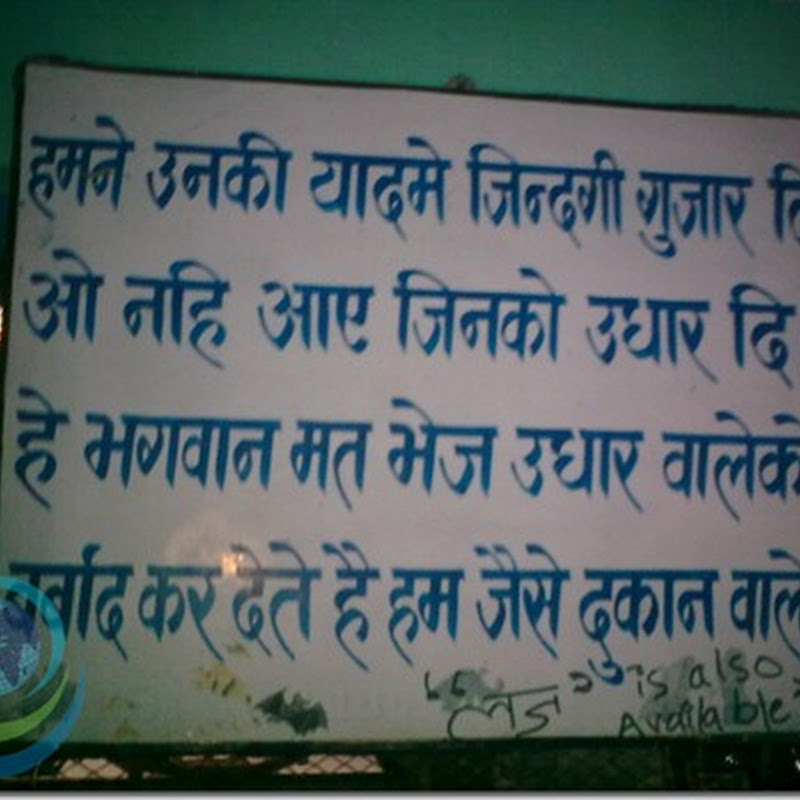 हमने उनकी यादमे जिन्दगी गुजार
ओ नहि आए जिनको उधार दि
हे भगवान मत भेज उधार वालेको
कर देते है हम जैसे दुकान वाले
is also
Available"